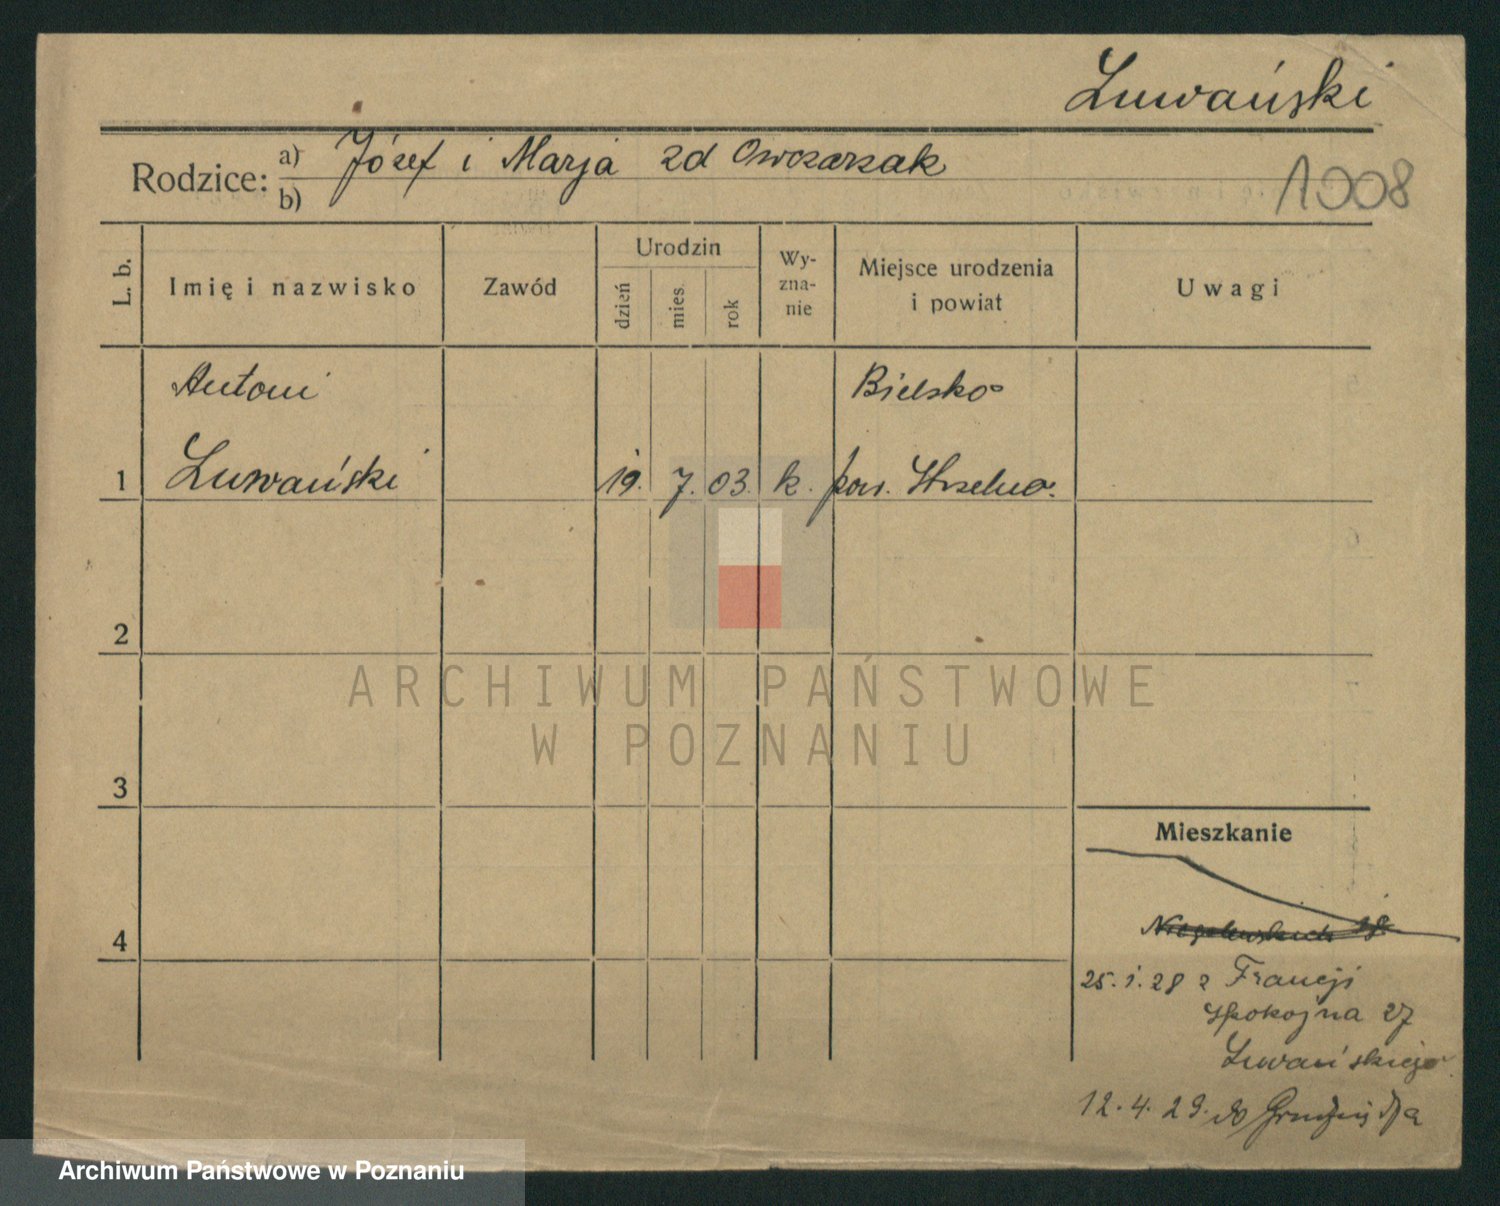 Luwański
Rodzice: a) Józef i Marja zd Owczarzak
b)
1008
L. b.
Imię i nazwisko
Zawód
Urodzin
dzień
mies.
rok
Wy-
zna-
nie
Miejsce urodzenia
i powiat
Uwagi
Antoni
Bielsko
1 Luwański 19. 7. 03. k. pow. Strzelno.
2
ARCHIWUM PAŃSTWOWE
W POZNANIU
3
Mieszkanie
4
Niegolewskich 18
25.1.28 z Francji
Spokojna 27
Luwańskiego
12.4.29. do Grudziądza
Archiwum Państwowe w Poznaniu